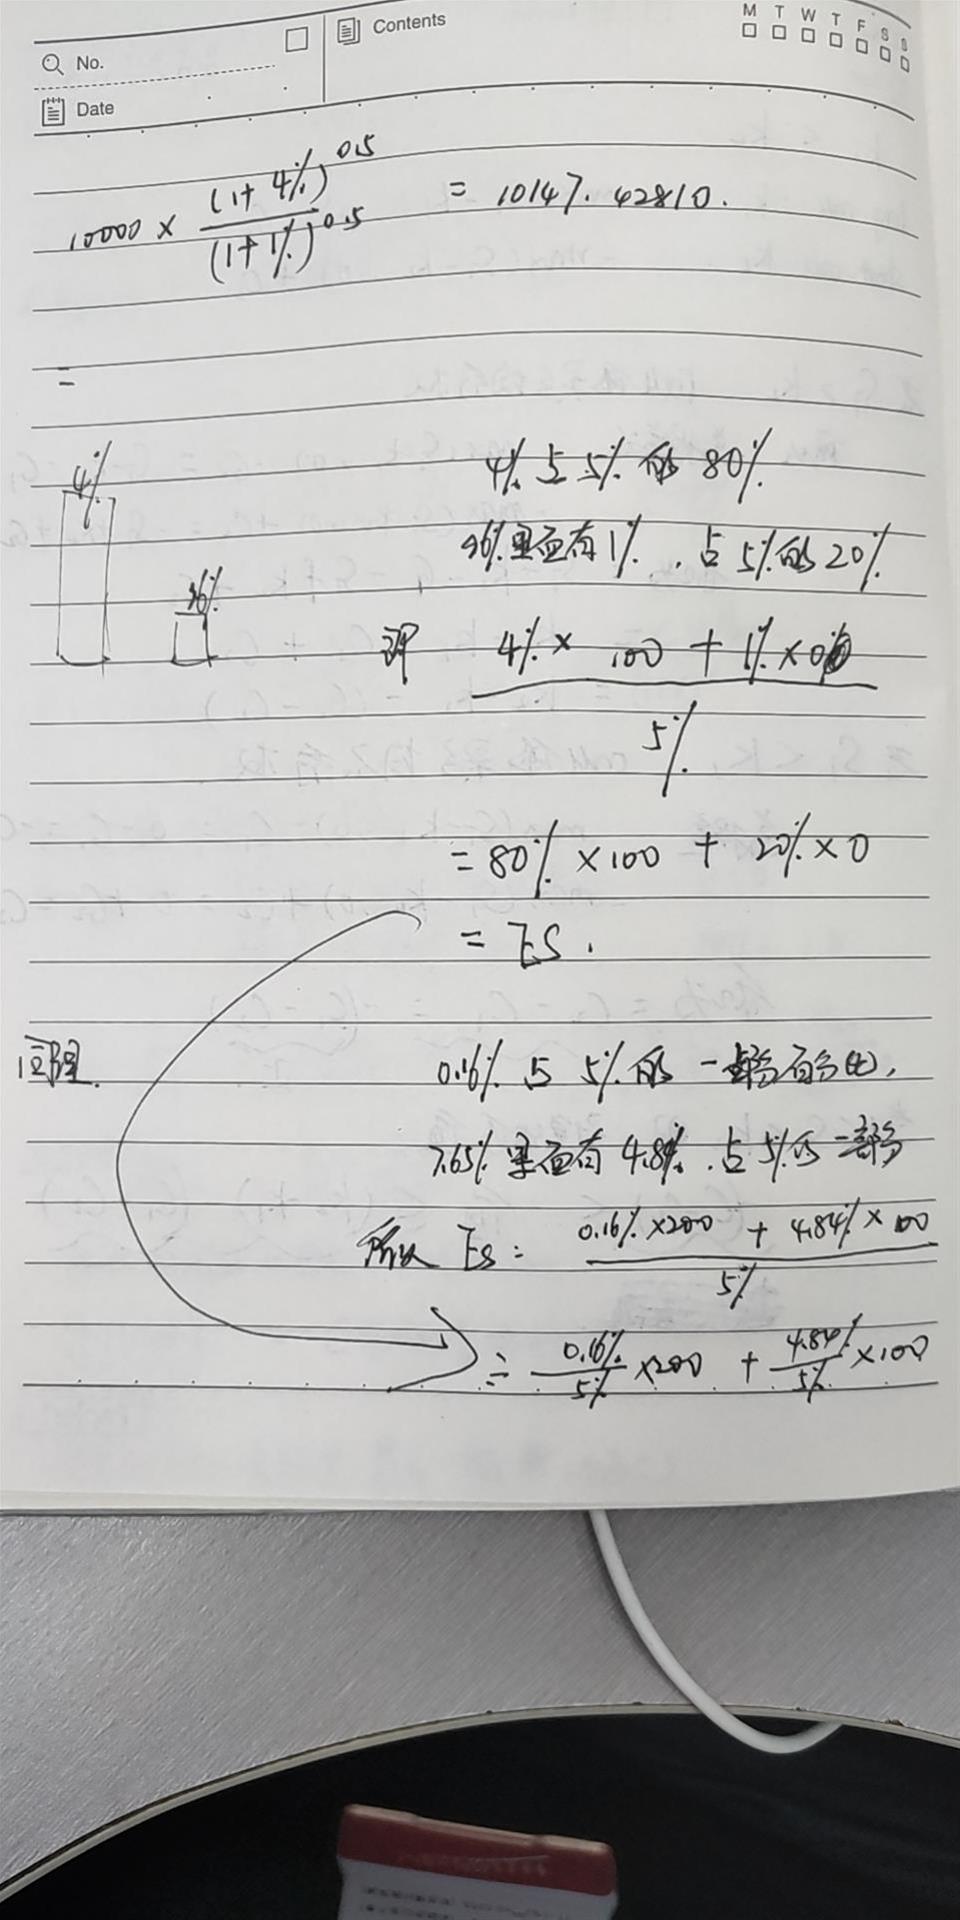 No.
Contents
M T W T F S S
Date
10000 × (1+4%)^0.5 / (1+1%)^0.5 = 10147.42810.
=
4%
96%
4% 占 5% 的 80%
96%里面有1%，占5%的20%
即 (4% × 100 + 1% × 0) / 5%
= 80% × 100 + 20% × 0
= ES.
同理.
0.16% 占 5% 的一部分百分比,
7.65% 里面有 4.84%. 占5%的一部分
所以 ES = (0.16% × 200 + 4.84% × 100) / 5%
= 0.16%/5% × 200 + 4.84%/5% × 100